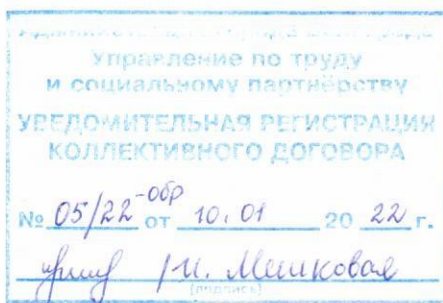 Управление по труду
и социальному партнёрству
УВЕДОМИТЕЛЬНАЯ РЕГИСТРАЦИЯ
КОЛЛЕКТИВНОГО ДОГОВОРА
№ 05/22-обр от 10.01 2022 г.
/И. Мешковой
(подпись)